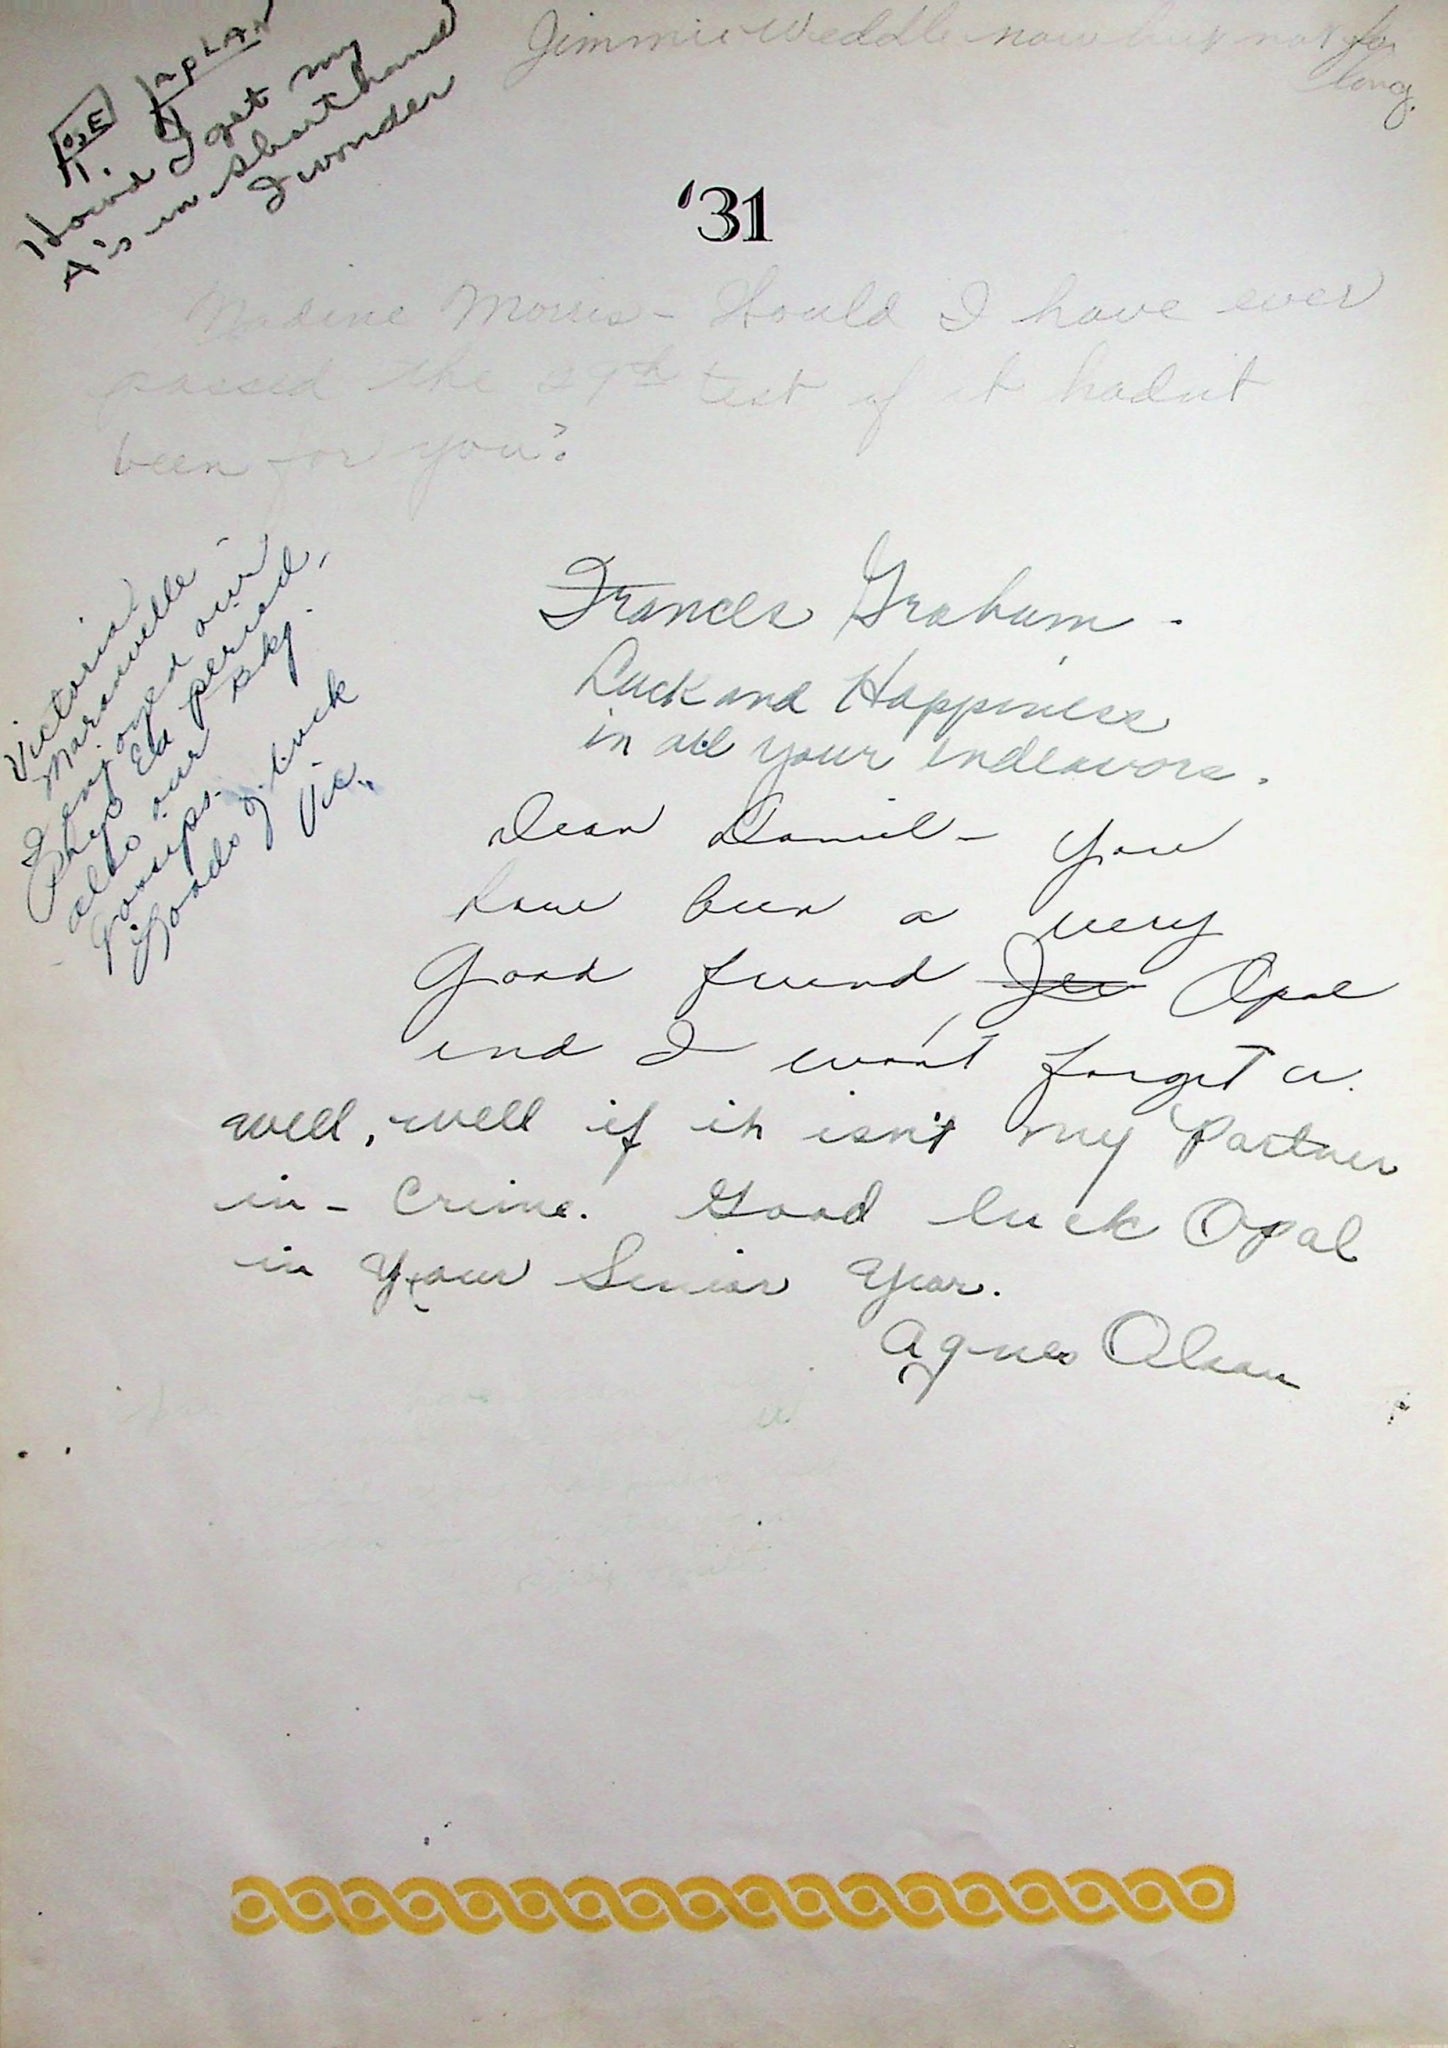 Jimmie Weddle now but not for
long.
How'd I get my
A's in shorthand
I wonder
'31
Nadine Morris - Would I have ever
passed the 29th test if it hadn't
been for you?
Victoria
I enjoyed our
Phys Ed period,
also our Bkg.
gossips.
Loads of luck
Vic.
Frances Graham.
Luck and Happiness
in all your endeavors.
Dear Daniel - you
have been a very
good friend, Opal
and I won't forget u.
Well, well if it isn't my Partner
in - Crime. Good luck Opal
in your Senior Year.
Agnes Olson